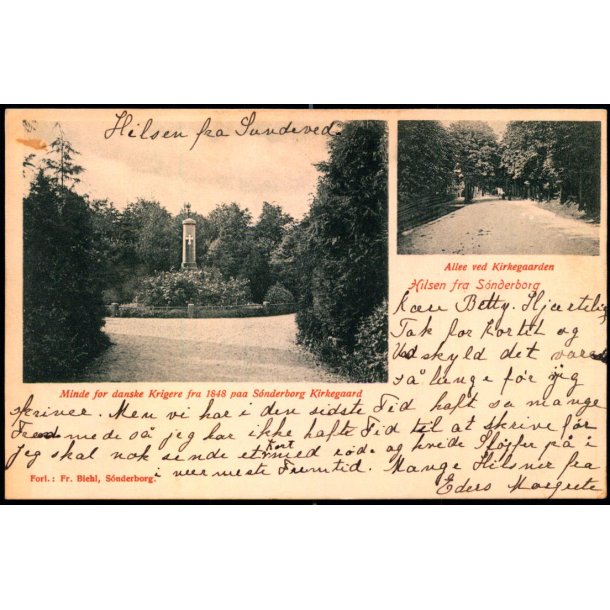 Hilsen fra Sundeved.
Allee ved Kirkegaarden
Hilsen fra Sónderborg
Kære Betty. Hjærtelig
Tak for Kortet og
Undskyld det varede
så længe før jeg
Minde for danske Krigere fra 1848 paa Sónderborg Kirkegaard
skriver. Men vi har i den sidste Tid haft så mange
Fremmede så jeg har ikke hafte Tid til at skrive før
Jeg skal nok sende et Kort med røde og hvide Sløjfer på i
i nærmeste Fremtid. Mange Hilsner fra
Eders Margrete
Forl.: Fr. Biehl, Sónderborg.